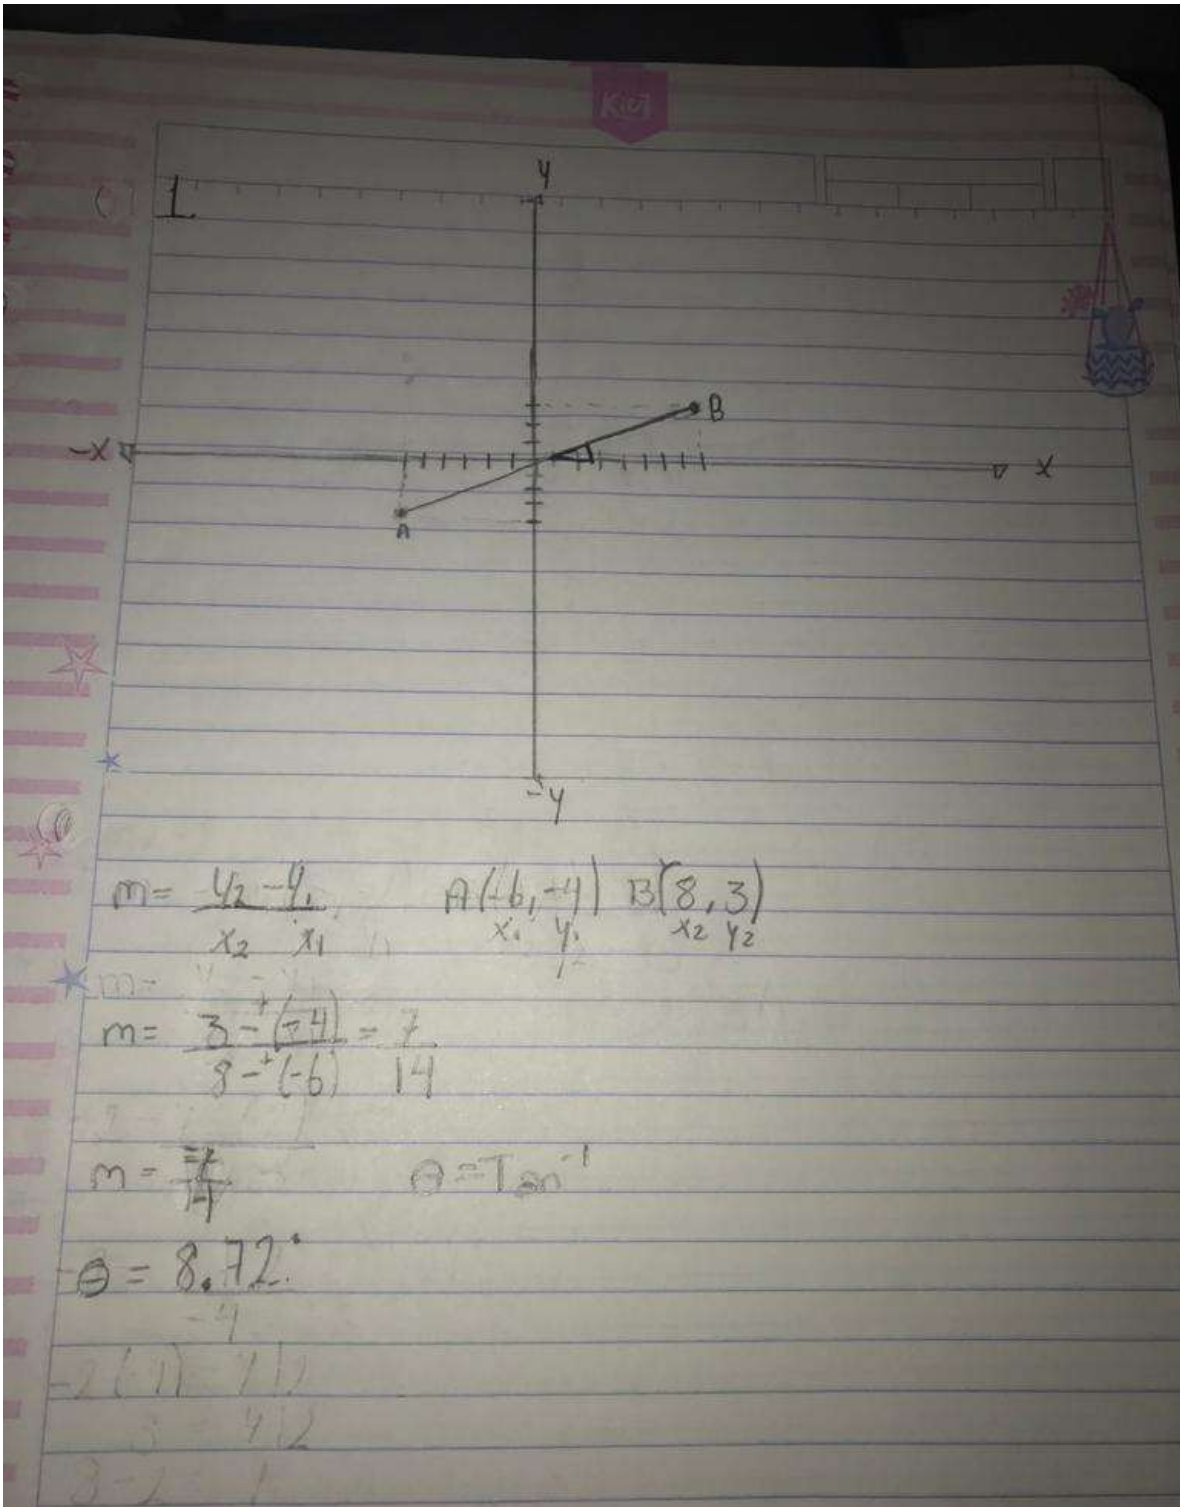 Kiut
1
y
B
-x x
A
-y
m = y₂ - y₁ / x₂ x₁ A(-6, -4) B(8, 3)
x₁ y₁ x₂ y₂
m =
m = 3 -⁺ (-4) / 8 -⁺ (-6) = 7 / 14
m = 7 / 14 θ = Tan⁻¹
θ = 8.72°